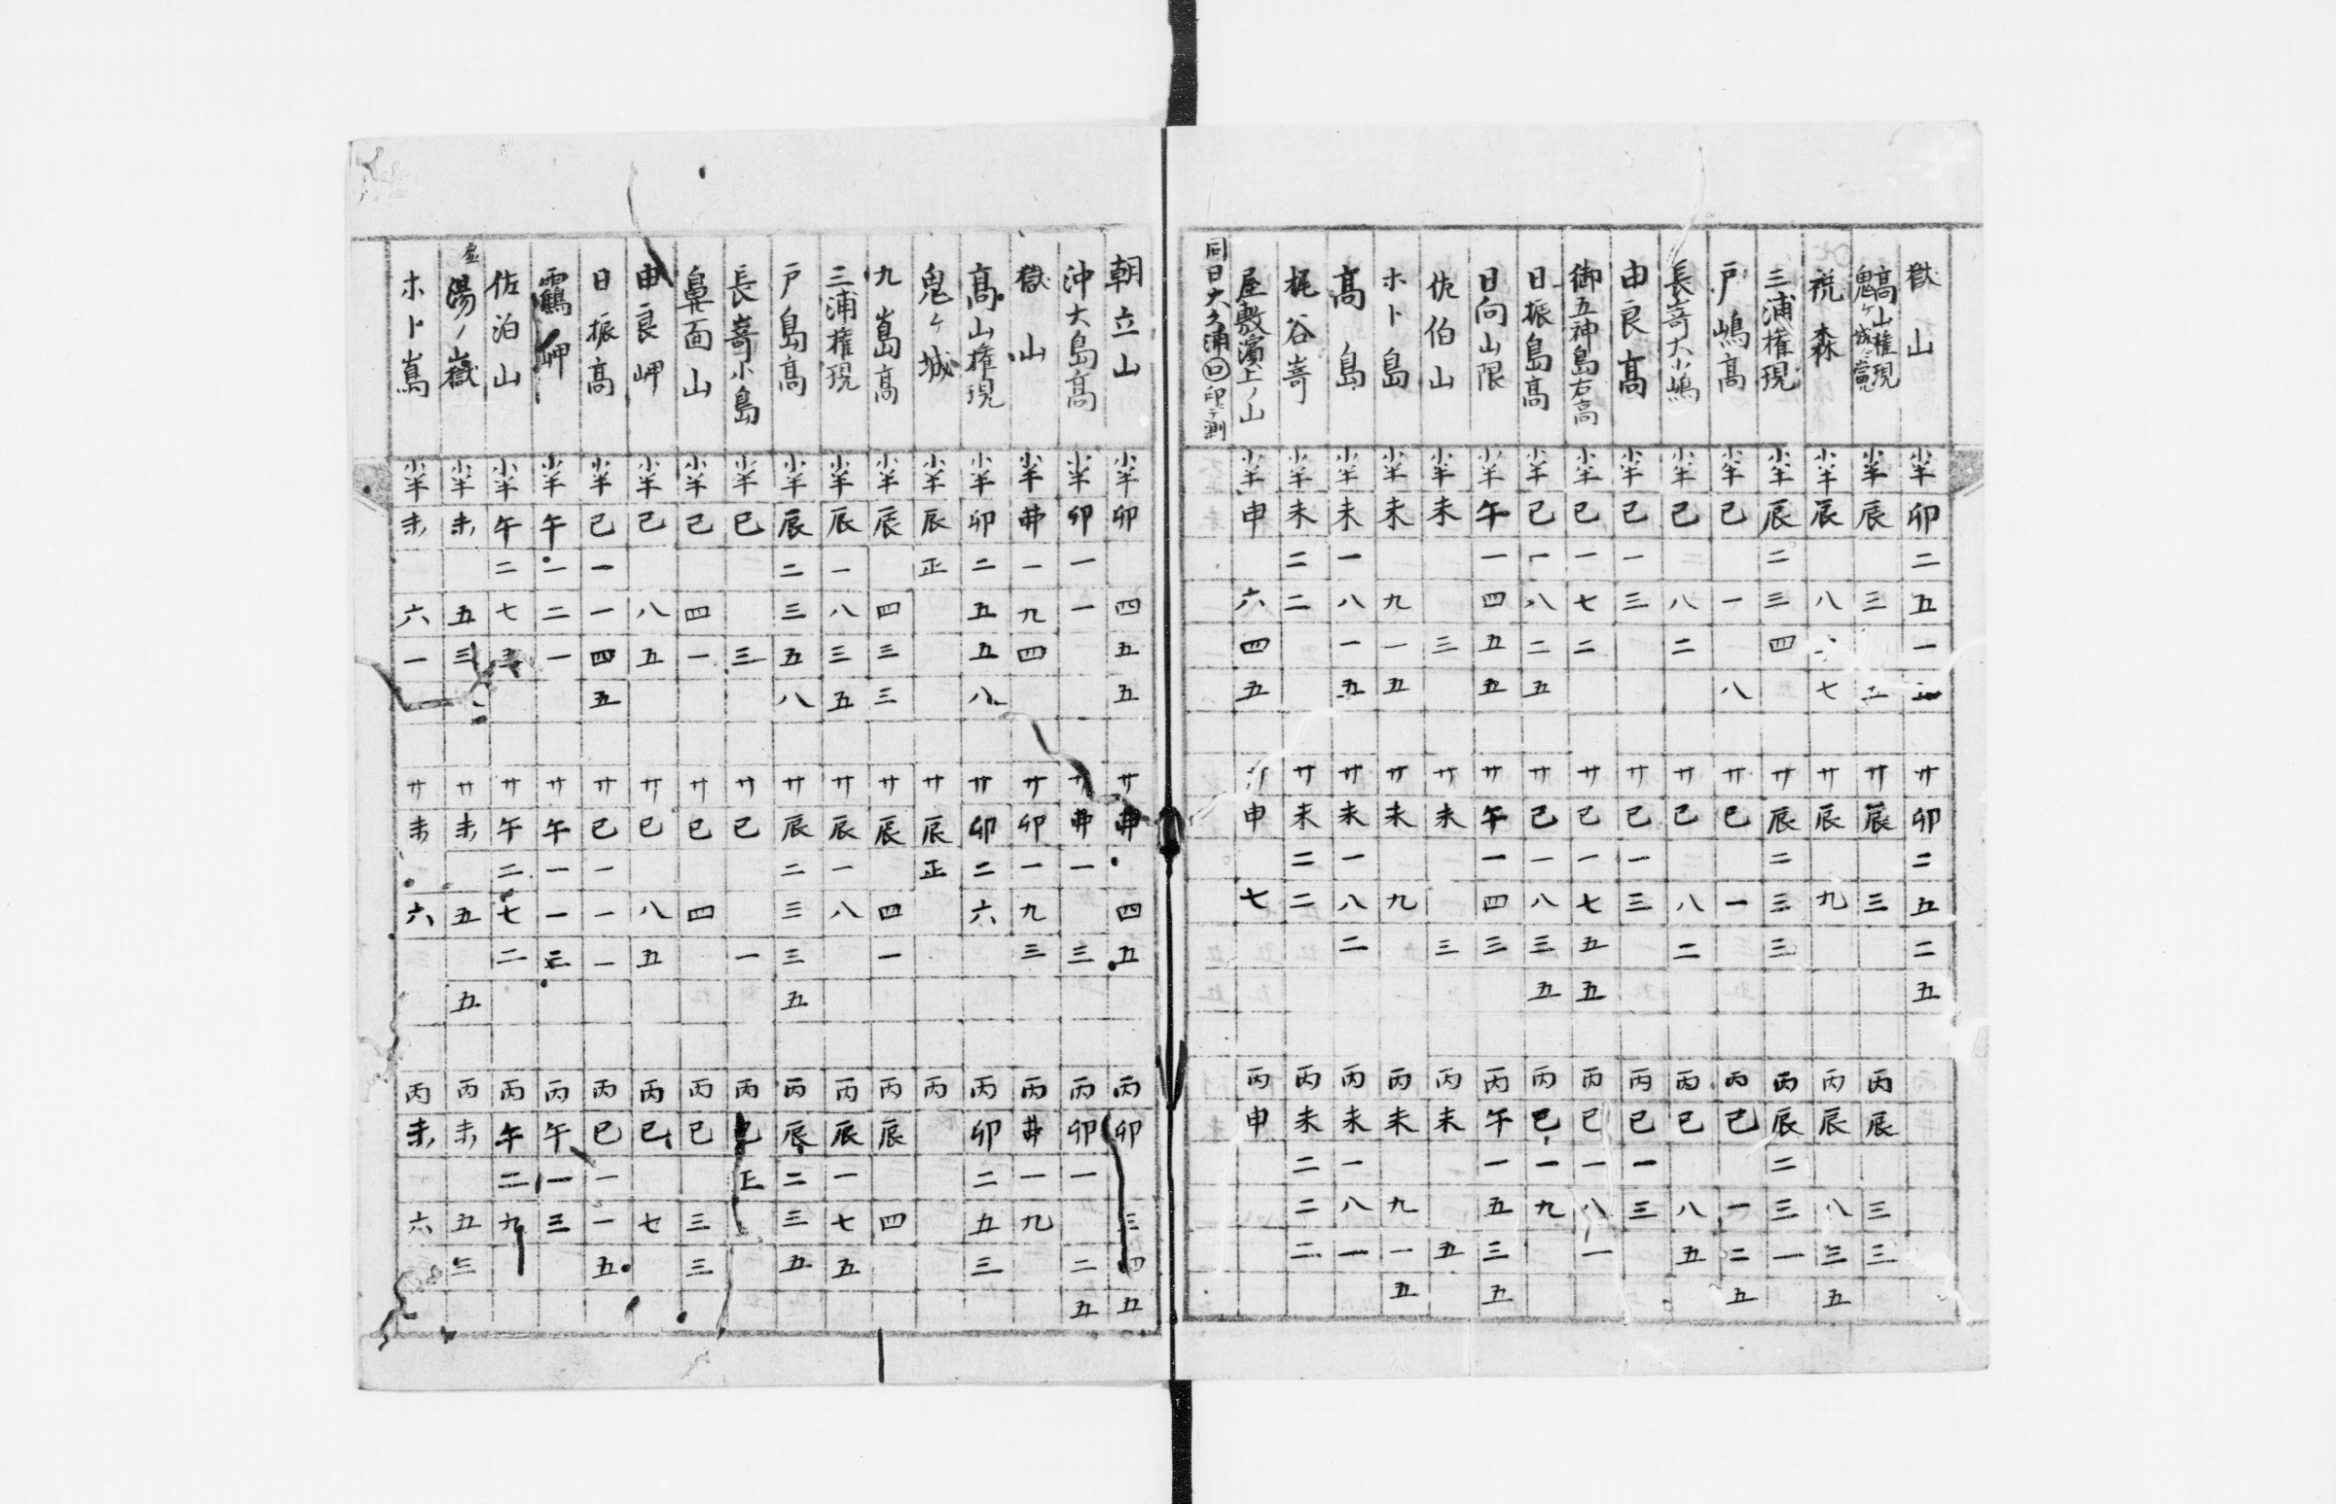 獄山 半 卯 二五一五 廿 卯 二五二五
高山権現 鬼ヶ城 半 辰 三 五 廿 辰 三 丙 辰 三三
森 半 辰 八 七 廿 辰 九 丙 辰 八三五
三浦権現 半 辰 二三四 廿 辰 二三三 丙 辰 二三一
戸嶋高 半 巳 一 八 廿 巳 一 丙 巳 一二五
長嵜大小嶋 半 巳 八二 廿 巳 八二 丙 巳 八五
由良高 半 巳 一三 廿 巳 一三 丙 巳 一三
御五神島右高 半 巳 一七二 廿 巳 一七五五 丙 巳 一八一
日振島高 半 巳 一八二五 廿 巳 一八三五 丙 巳 一九
日向山限 半 午 一四五五 廿 午 一四三 丙 午 一五三五
佐伯山 半 未 三 廿 未 三 丙 未 五
ホト島 半 未 九一五 廿 未 九 丙 未 九一五
高島 半 未 一八一五 廿 未 一八二 丙 未 一八一
梶谷嵜 半 未 二二 廿 未 二二 丙 未 二二二
屋敷濱上ノ山 半 申 六四五 廿 申 七 丙 申
同日大久浦 回 印ヲ測
朝立山 半 卯 四五五 廿 卯 四五 丙 卯 三四五
沖大島高 半 卯 一一 廿 卯 一 三 丙 卯 一 二五
獄山 半 卯 一九四 廿 卯 一九三 丙 卯 一九
高山権現 半 卯 二五五八 廿 卯 二六 丙 卯 二五三
鬼ヶ城 半 辰 正 廿 辰 正 丙
九嶌高 半 辰 四三三 廿 辰 四一 丙 辰 四
三浦権現 半 辰 一八三五 廿 辰 一八 丙 辰 一七五
戸島高 半 辰 二三五八 廿 辰 二三三五 丙 辰 二三五
長嵜小島 半 巳 三 廿 巳 一 丙 巳 正
鼻面山 半 巳 四一 廿 巳 四 丙 巳 三三
由良岬 半 巳 八五 廿 巳 八五 丙 巳 七
日振高 半 巳 一一四五 廿 巳 一一一 丙 巳 一一五
鶴岬 半 午 一二一 廿 午 一一三 丙 午 一三
佐泊山 半 午 二七三 廿 午 二七二 丙 午 二九
湯ノ嶽 半 未 五三 廿 未 五 五 丙 未 五三
ホト嶌 半 未 六一 廿 未 六 丙 未 六